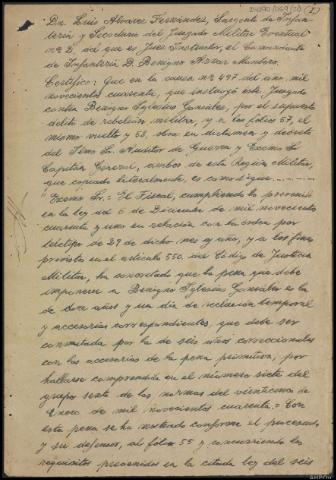 Dn. Luis Alvarez Fernández, Sargento de Infan-
tería y Secretario del Juzgado Militar Eventual
nº 2, del que es Juez Instructor, el Comandante
de Infantería D. Benigno
Certifico: Que en la causa nº 497 del año mil
novecientos cuarenta, que instruyó este Juzgado
contra Benigno Iglesias González, por el supuesto
delito de rebelión militar, y a los folios 57, el
mismo vuelto y 58, obra un dictamen y decreto
del Ilmo Sr. Auditor de Guerra y Excmo Sr.
Capitán General, ambos de esta Región Militar,
que copiado literalmente, es como sigue
Excmo Sr. = El Fiscal, cumpliendo lo prevenido
en la ley de 6 de Diciembre de mil novecientos
cuarenta y uno en relación con la orden por
teletipo de 29 de dicho mes y año, y a los fines
previstos en el artículo 550 del Código de Justicia
Militar, ha concretado que la pena que debe
imponerse a Benigno Iglesias González es la
de doce años y un día de reclusión temporal
y accesorias correspondientes, que debe ser
conmutada por la de seis años correccionales
con las accesorias de la pena primitiva, por
hallarse comprendido en el número siete del
grupo sexto de las normas del veinticinco de
Enero de mil novecientos cuarenta = Con
esta pena se ha mostrado conforme el procesado
y su defensor, al folio 55 y concurriendo los
requisitos prevenidos en la citada ley del seis